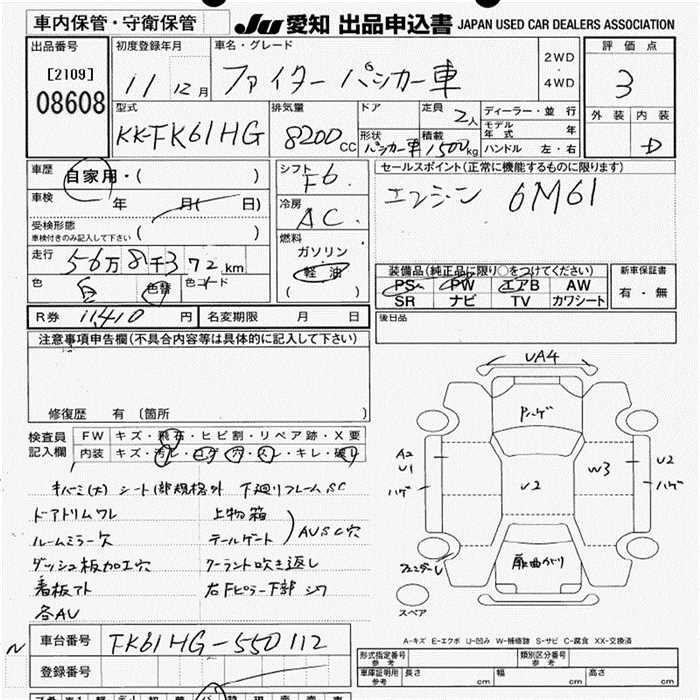 車内保管・守衛保管 JU 愛知 出品申込書 JAPAN USED CAR DEALERS ASSOCIATION
出品番号 初度登録年月 車名・グレード 2WD・4WD 評価点
[2109] 11 12月 ファイター パッカー車 3
08608 型式 排気量 ドア 定員 2人 ディーラー・並行 外装 内装
KK-FK61HG 8200CC 形状 パッカー車 積載 1500kg モデル年式 年 D
ハンドル 左・右
車歴 自家用・( ) シフト F6 セールスポイント(正常に機能するものに限ります)
車検 年 月( 日) 冷房 AC エンジン 6M61
受検形態 ( )
車検付きのみ記入して下さい
燃料 ガソリン
走行 56万8千372km 軽油 装備品(純正品に限り○をつけてください) 新車保証書
色 白 色替 色コード ( ) PS PW エアB AW 有・無
SR ナビ TV カワシート
R券 11,410円 名変期限 月 日 後日品
注意事項申告欄(不具合内容等は具体的に記入して下さい)
UA4
修復歴 有 〔箇所
検査員 FW キズ・飛石・ヒビ割・リペア跡・X要
記入欄 内装 キズ・汚レ・コゲ・穴・スレ・キレ・破レ
キバミ(大) シート1部規格外 下廻りフレームSC
ドアトリムワレ 上物箱
ルームミラー欠 テールゲート AUSC穴
ダッシュ板加工穴 クーラント吹き返し
看板アト 右Fピラー下部 シワ
各AU
A2
U1
ハゲ
U2
W3
U2
ハゲ
フェンダーU
扉曲がり
スペア
A-キズ E-エクボ U-凹み W-補修跡 S-サビ C-腐食 XX-交換済
車台番号 FK61HG-550112
登録番号
形式指定番号 参考 類別区分番号 参考
車庫証明用 参考 長さ cm 幅 cm 高さ cm